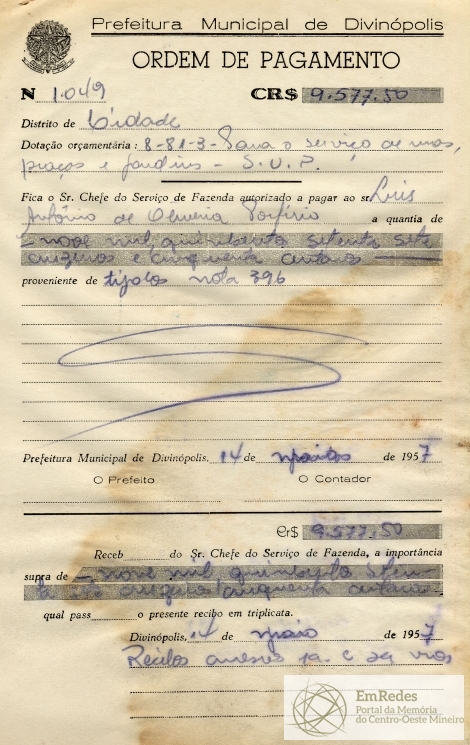 Prefeitura Municipal de Divinópolis
ORDEM DE PAGAMENTO
N 1.049 CR$ 9.577.50
Distrito de Cidade
Dotação orçamentária : 8-81-3- Para o serviço de ruas,
praças e jardins - S.U.P.
Fica o Sr. Chefe do Serviço de Fazenda autorizado a pagar ao sr. Luis
Antônio de Oliveira Porfírio a quantia de
nove mil quinhentos setenta sete
cruzeiros e cinquenta centavos
proveniente de tijolos nota 396
Prefeitura Municipal de Divinópolis, 14 de de 1957
O Prefeito O Contador
Cr$ 9.577.50
Receb do Sr. Chefe do Serviço de Fazenda, a importância
supra de nove mil quinhentos seten
ta sete cruzeiros cinquenta centavos
qual pass o presente recibo em triplicata.
Divinópolis, 14 de maio de 1957
Recibos anexos 1a. e 2a. vias
EmRedes
Portal da Memória
do Centro-Oeste Mineiro